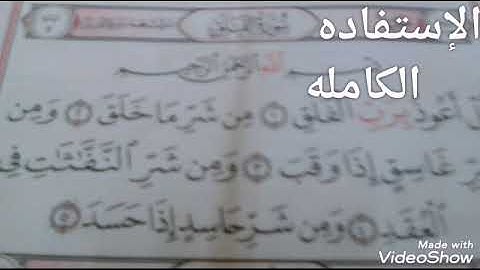 الإستفاده
الكامله
سورة الفلق
بسم الله الرحمن الرحيم
أعوذ برب الفلق ١ من شر ما خلق ٢ ومن
غاسق إذا وقب ٣ ومن شر النفثت في
العقد ٤ ومن شر حاسد إذا حسد ٥
Made with
VideoShow